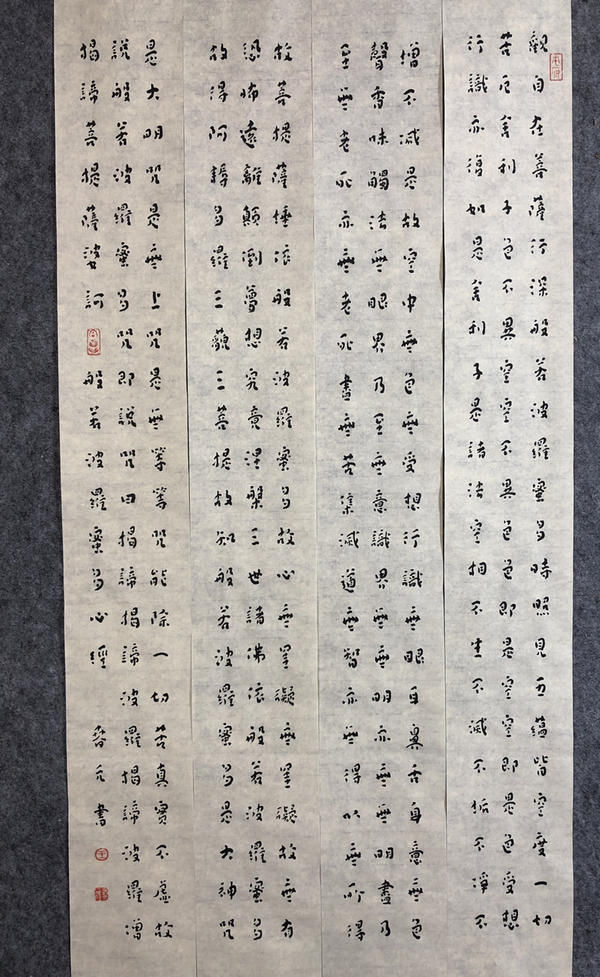 觀自在菩薩行深般若波羅蜜多時照見五蘊皆空度一切
苦厄舍利子色不異空空不異色色即是空空即是色受想
行識亦復如是舍利子是諸法空相不生不滅不垢不淨不
增不減是故空中無色無受想行識無眼耳鼻舌身意無色
聲香味觸法無眼界乃至無意識界無無明亦無無明盡乃
至無老死亦無老死盡無苦集滅道無智亦無得以無所得
故菩提薩埵依般若波羅蜜多故心無罣礙無罣礙故無有
恐怖遠離顛倒夢想究竟涅槃三世諸佛依般若波羅蜜多
故得阿耨多羅三藐三菩提故知般若波羅蜜多是大神咒
是大明咒是無上咒是無等等咒能除一切苦真實不虛故
說般若波羅蜜多咒即說咒曰揭諦揭諦波羅揭諦波羅僧
揭諦菩提薩婆訶 般若波羅蜜多心經 書